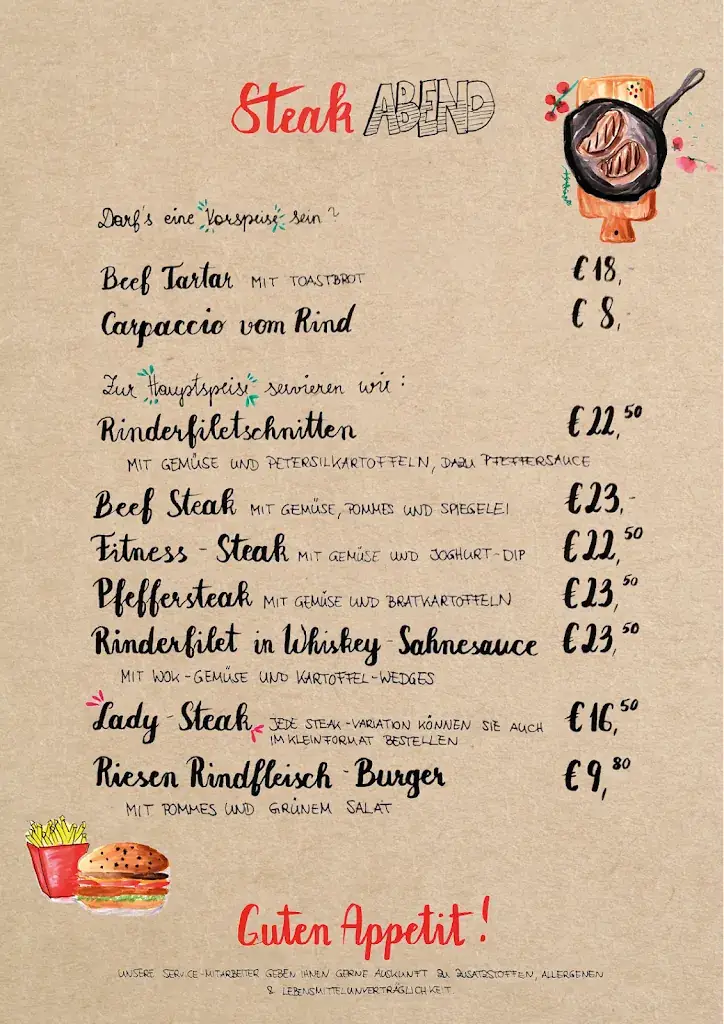 Steak ABEND
Darf's eine Vorspeise sein?
Beef Tartar MIT TOASTBROT € 18,-
Carpaccio vom Rind € 8,-
Zur Hauptspeise servieren wir:
Rinderfiletschnitten € 22,50
MIT GEMÜSE UND PETERSILKARTOFFELN, DAZU PFEFFERSAUCE
Beef Steak MIT GEMÜSE, POMMES UND SPIEGELEI € 23,-
Fitness-Steak MIT GEMÜSE UND JOGHURT-DIP € 22,50
Pfeffersteak MIT GEMÜSE UND BRATKARTOFFELN € 23,50
Rinderfilet in Whiskey-Sahnesauce € 23,50
MIT WOK-GEMÜSE UND KARTOFFEL-WEDGES
Lady-Steak JEDE STEAK-VARIATION KÖNNEN SIE AUCH € 16,50
IM KLEINFORMAT BESTELLEN
Riesen Rindfleisch-Burger € 9,80
MIT POMMES UND GRÜNEM SALAT
Guten Appetit!
UNSERE SERVICE-MITARBEITER GEBEN IHNEN GERNE AUSKUNFT ZU ZUSATZSTOFFEN, ALLERGENEN
& LEBENSMITTELUNVERTRÄGLICHKEIT